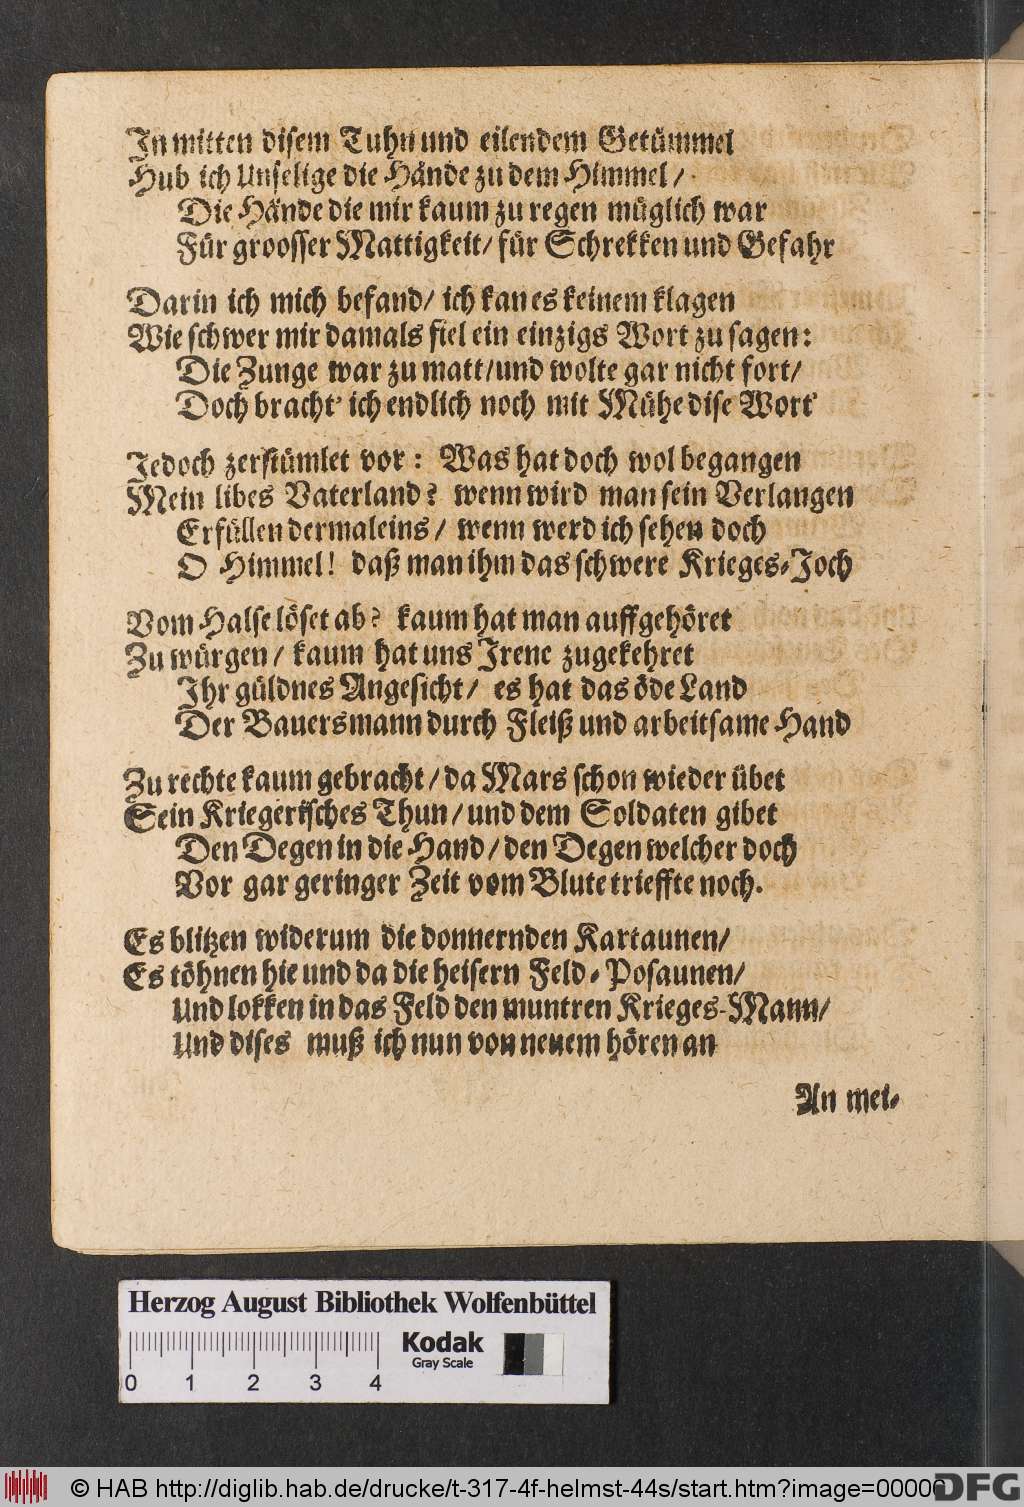 In mitten disem Tuhn und eilendem Getümmel
Hub ich Unselige die Hände zu dem Himmel /
Die Hände die mir kaum zu regen müglich war
Für groosser Mattigkeit / für Schrekken und Gefahr
Darin ich mich befand / ich kan es keinem klagen
Wie schwer mir damals fiel ein einzigs Wort zu sagen :
Die Zunge war zu matt / und wolte gar nicht fort /
Doch bracht' ich endlich noch mit Mühe dise Wort'
Jedoch zerstümlet vor : Was hat doch wol begangen
Mein libes Vaterland ? wenn wird man sein Verlangen
Erfüllen dermaleins / wenn werd ich sehen doch
O Himmel ! daß man ihm das schwere Krieges-Joch
Vom Halse löset ab ? kaum hat man auffgehöret
Zu würgen / kaum hat uns Irene zugekehret
Ihr güldnes Angesicht / es hat das öde Land
Der Bauersmann durch Fleiß und arbeitsame Hand
Zu rechte kaum gebracht / da Mars schon wieder übet
Sein Kriegerisches Thun / und dem Soldaten gibet
Den Degen in die Hand / den Degen welcher doch
Vor gar geringer Zeit vom Blute trieffte noch.
Es blitzen widerum die donnernden Kartaunen /
Es töhnen hie und da die heisern Feld-Posaunen /
Und lokken in das Feld den muntren Krieges-Mann /
Und dises muß ich nun von neuem hören an
An mei-
Herzog August Bibliothek Wolfenbüttel
Kodak
Gray Scale
0 1 2 3 4
© HAB http://diglib.hab.de/drucke/t-317-4f-helmst-44s/start.htm?image=00006
DFG